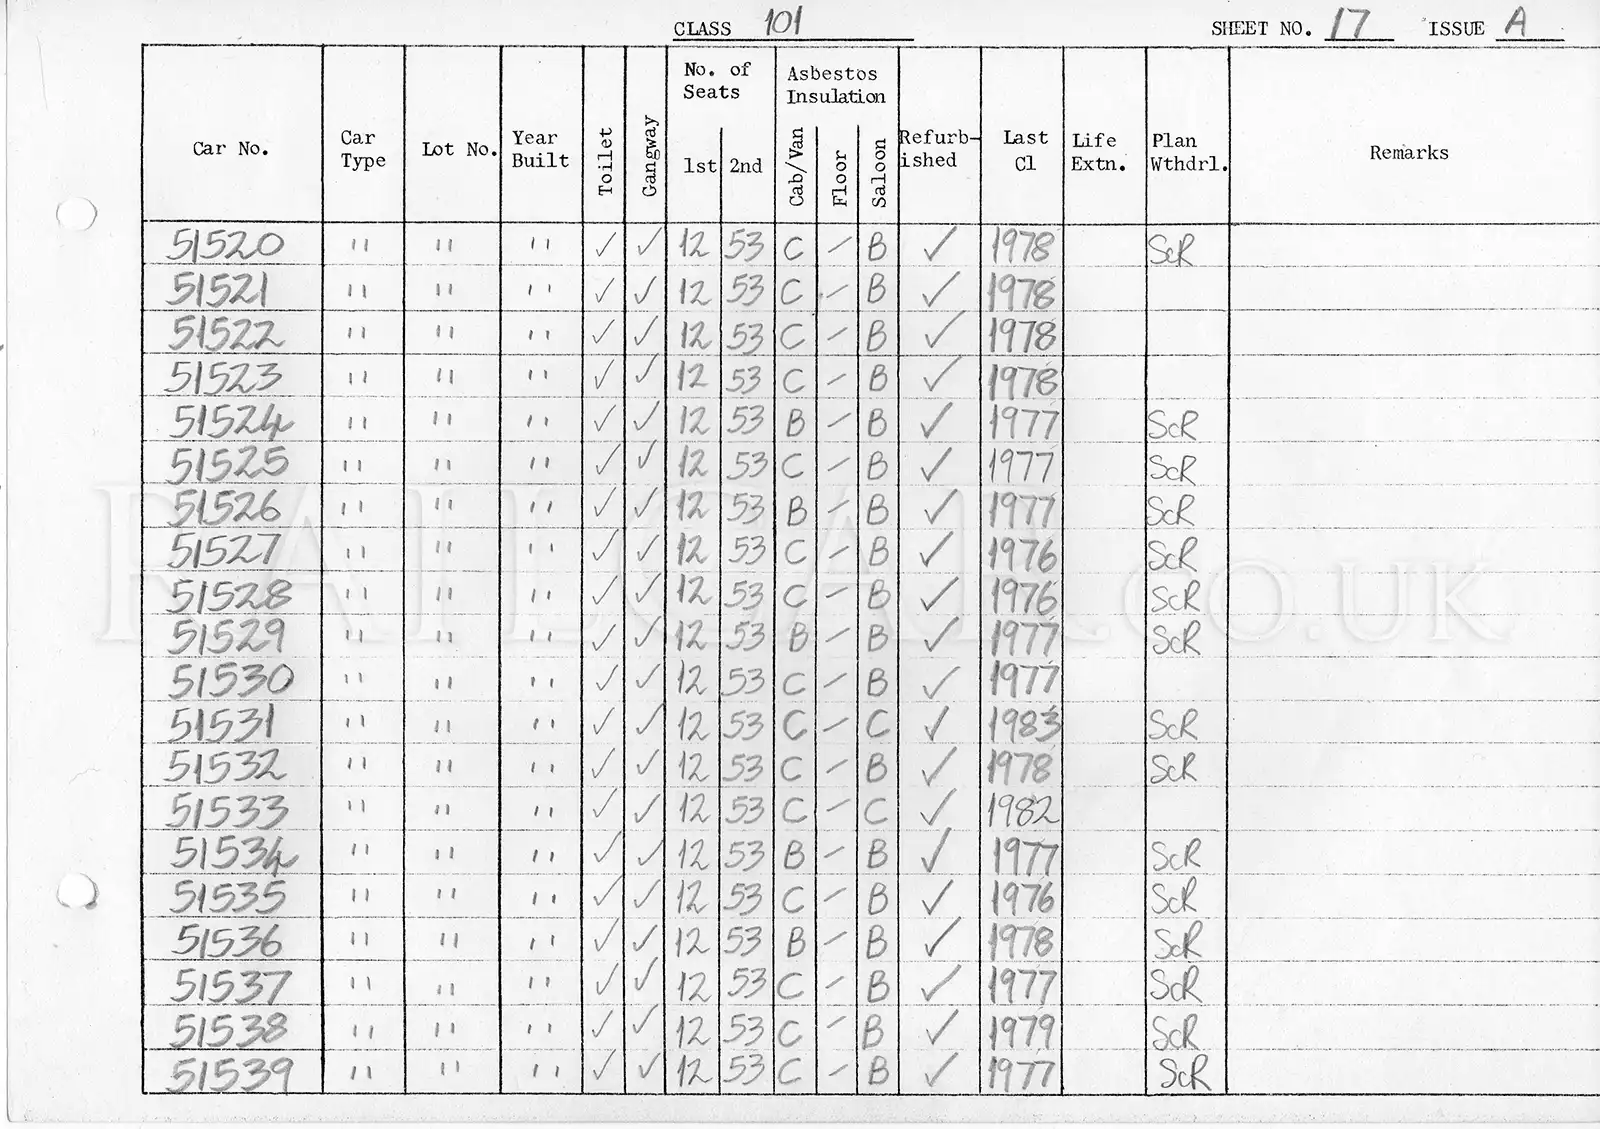 CLASS 101 SHEET NO. 17 ISSUE A
Car No. Car Type Lot No. Year Built Toilet Gangway No. of Seats 1st 2nd Asbestos Insulation Cab/Van Floor Saloon Refurb-ished Last Cl Life Extn. Plan Wthdrl. Remarks
51520 " " " ✓ ✓ 12 53 C - B ✓ 1978 ScR
51521 " " " ✓ ✓ 12 53 C - B ✓ 1978
51522 " " " ✓ ✓ 12 53 C - B ✓ 1978
51523 " " " ✓ ✓ 12 53 C - B ✓ 1978
51524 " " " ✓ ✓ 12 53 B - B ✓ 1977 ScR
51525 " " " ✓ ✓ 12 53 C - B ✓ 1977 ScR
51526 " " " ✓ ✓ 12 53 B - B ✓ 1977 ScR
51527 " " " ✓ ✓ 12 53 C - B ✓ 1976 ScR
51528 " " " ✓ ✓ 12 53 C - B ✓ 1976 ScR
51529 " " " ✓ ✓ 12 53 B - B ✓ 1977 ScR
51530 " " " ✓ ✓ 12 53 C - B ✓ 1977
51531 " " " ✓ ✓ 12 53 C - C ✓ 1983 ScR
51532 " " " ✓ ✓ 12 53 C - B ✓ 1978 ScR
51533 " " " ✓ ✓ 12 53 C - C ✓ 1982
51534 " " " ✓ ✓ 12 53 B - B ✓ 1977 ScR
51535 " " " ✓ ✓ 12 53 C - B ✓ 1976 ScR
51536 " " " ✓ ✓ 12 53 B - B ✓ 1978 ScR
51537 " " " ✓ ✓ 12 53 C - B ✓ 1977 ScR
51538 " " " ✓ ✓ 12 53 C - B ✓ 1979 ScR
51539 " " " ✓ ✓ 12 53 C - B ✓ 1977 ScR
RAILCAR.CO.UK